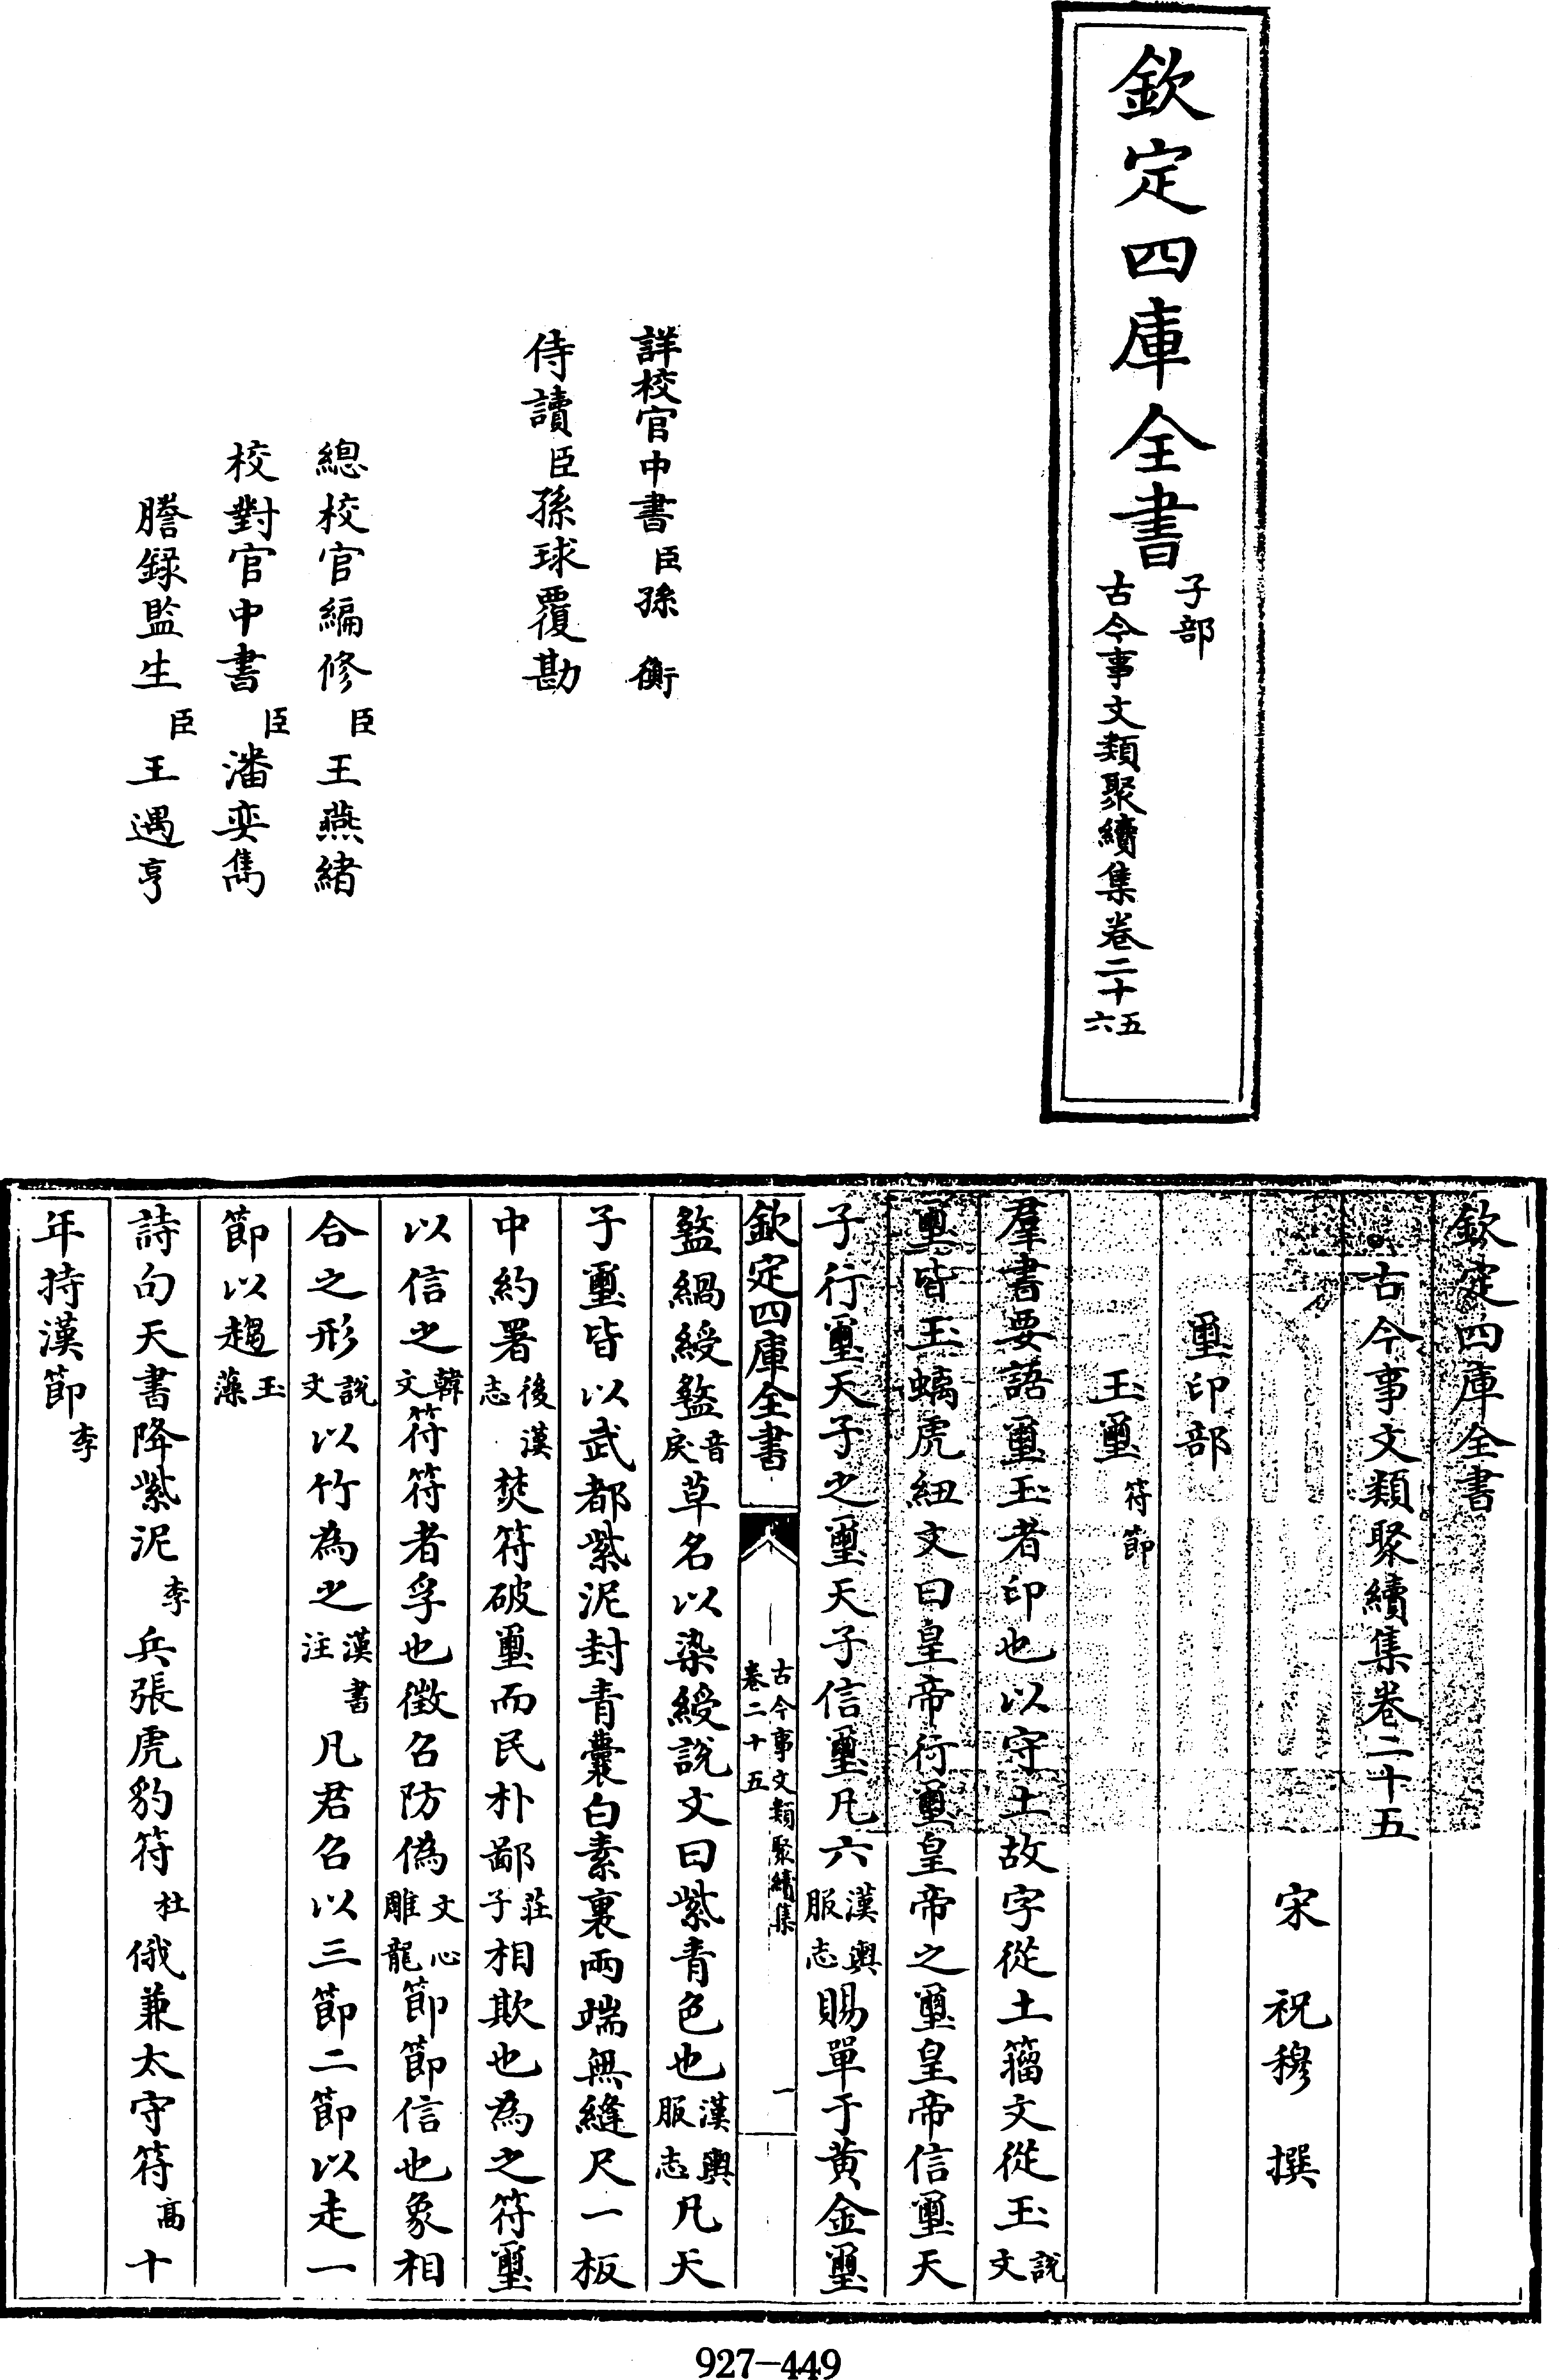 欽定四庫全書
子部
古今事文類聚續集卷二十五
六
詳校官中書臣孫衡
侍讀臣孫球覆勘
總校官編修臣王燕緒
校對官中書臣潘奕雋
謄錄監生臣王遇亨
欽定四庫全書
古今事文類聚續集卷二十五
宋 祝穆 撰
璽印部
玉璽符節
羣書要語璽玉者印也以守土故字從土籀文從玉說文
璽皆玉螭虎紐文曰皇帝行璽皇帝之璽皇帝信璽天
子行璽天子之璽天子信璽凡六漢輿服志賜單于黃金璽
欽定四庫全書
古今事文類聚續集
卷二十五
一
盭緺綬盭音戾草名以染綬說文曰紫青色也漢輿服志凡天
子璽皆以武都紫泥封青囊白素裏兩端無縫尺一板
中約署後漢志焚符破璽而民朴鄙莊子相欺也為之符璽
以信之韓文符符者孚也徵召防偽文心雕龍節節信也象相
合之形說文以竹為之漢書注凡君召以三節二節以走一
節以趨玉藻
詩句天書降紫泥李兵張虎豹符杜俄兼太守符高十
年持漢節李
927-449